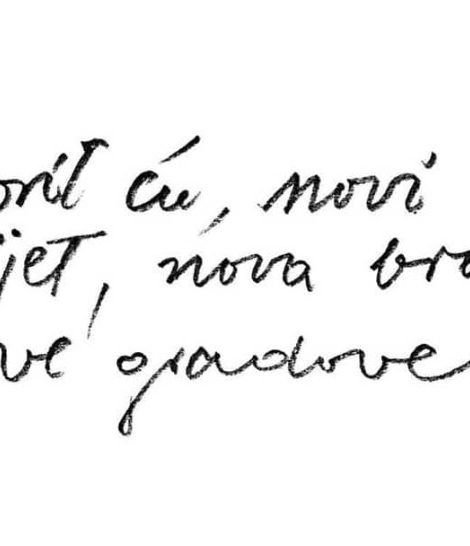 orit ću, novi
ijet, nova bra
ve gradove